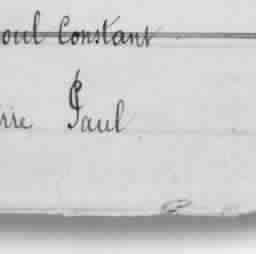 oul Constant
rre Paul